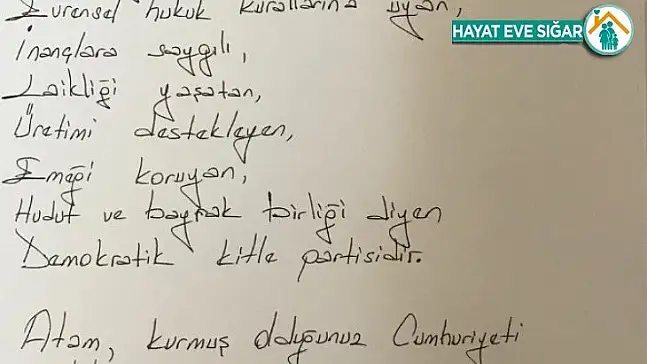 Evrensel hukuk kurallarına uyan,
HAYAT EVE SIĞAR
İnançlara saygılı,
Laikliği yaşatan,
Üretimi destekleyen,
Emeği koruyan,
Hudut ve bayrak birliği diyen
Demokratik kitle partisidir.
Atam, kurmuş olduğunuz Cumhuriyeti